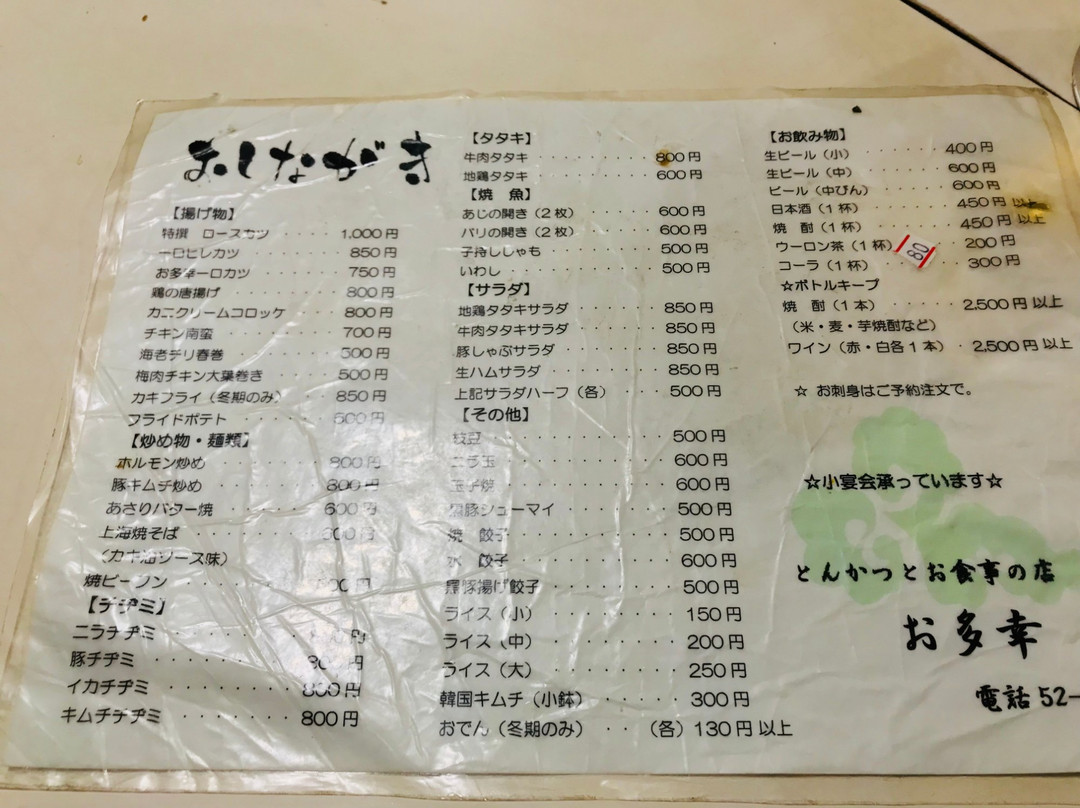 おしながき
【揚げ物】
特撰 ロースカツ ・・・・ 1,000円
一口ヒレカツ ・・・・・・ 850円
お多幸一口カツ ・・・・・ 750円
鶏の唐揚げ ・・・・・・・ 800円
カニクリームコロッケ ・・・ 800円
チキン南蛮 ・・・・・・・ 700円
海老チリ春巻 ・・・・・・ 500円
梅肉チキン大葉巻き ・・・・ 500円
カキフライ（冬期のみ）・・ 850円
フライドポテト ・・・・・ 500円
【炒め物・麺類】
ホルモン炒め ・・・・・・ 800円
豚キムチ炒め ・・・・・・ 800円
あさりバター焼 ・・・・・ 600円
上海焼そば ・・・・・・ 00円
（カキ油ソース味）
焼ビーフン ・・・・・・ 00円
【チヂミ】
ニラチヂミ ・・・・・・・ 円
豚チヂミ ・・・・・・・ 800円
イカチヂミ ・・・・・・・ 800円
キムチチヂミ ・・・・・・ 800円
【タタキ】
牛肉タタキ ・・・・・・・ 800円
地鶏タタキ ・・・・・・・ 600円
【焼 魚】
あじの開き（２枚）・・・・ 600円
バリの開き（２枚）・・・・ 600円
子持ししゃも ・・・・・・ 500円
いわし ・・・・・・・・・ 500円
【サラダ】
地鶏タタキサラダ ・・・・・ 850円
牛肉タタキサラダ ・・・・・ 850円
豚しゃぶサラダ ・・・・・・ 850円
生ハムサラダ ・・・・・・・ 850円
上記サラダハーフ（各）・・・ 500円
【その他】
枝豆 ・・・・・・・・・・ 500円
ニラ玉 ・・・・・・・・・ 600円
玉子焼 ・・・・・・・・・ 600円
黒豚シューマイ ・・・・・・ 500円
焼 餃子 ・・・・・・・・ 500円
水 餃子 ・・・・・・・・ 600円
黒豚揚げ餃子 ・・・・・・・ 500円
ライス（小）・・・・・・・ 150円
ライス（中）・・・・・・・ 200円
ライス（大）・・・・・・・ 250円
韓国キムチ（小鉢）・・・・・ 300円
おでん（冬期のみ）・・（各）130円以上
【お飲み物】
生ビール（小）・・・・・・ 400円
生ビール（中）・・・・・・ 600円
ビール（中びん）・・・・・ 600円
日本酒（１杯）・・・・・・ 450円以上
焼 酎（１杯）・・・・・・ 450円以上
ウーロン茶（１杯） 180 ・・ 200円
コーラ（１杯）・・・・・・ 300円
☆ボトルキープ
焼 酎（１本）・・・・・ 2,500円以上
（米・麦・芋焼酎など）
ワイン（赤・白各１本）・ 2,500円以上
☆ お刺身はご予約注文で。
☆小宴会承っています☆
とんかつとお食事の店
お多幸
電話 52-